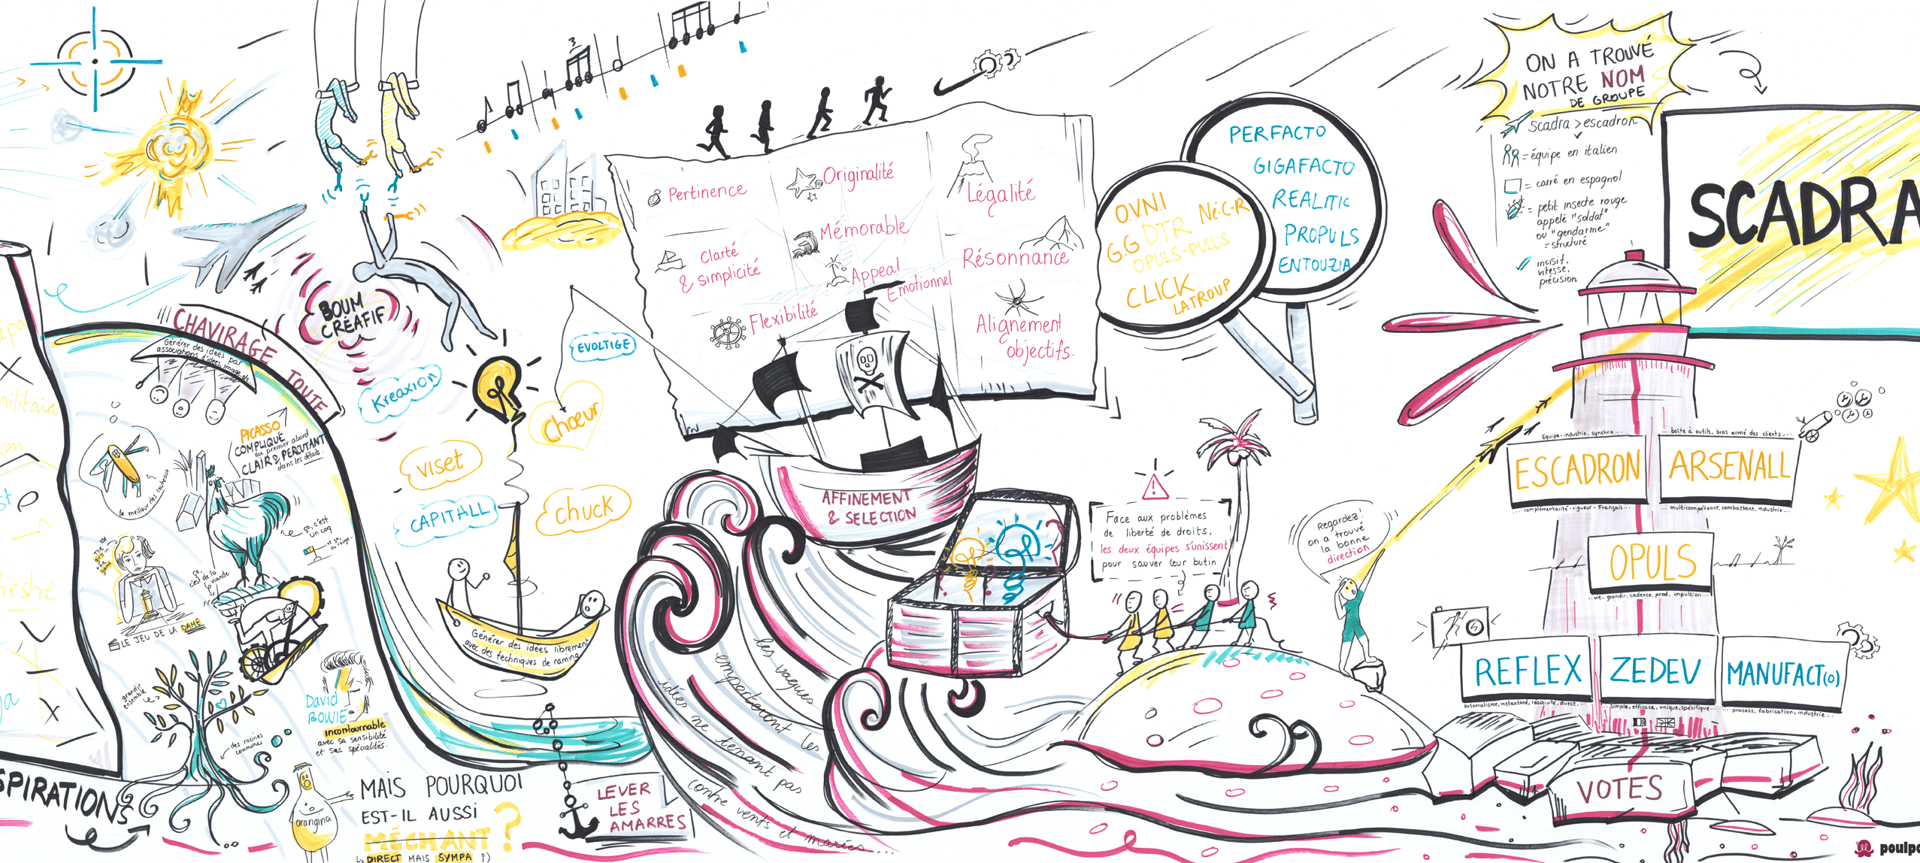 CHAVIRAGE
TOUTE
Générer des idées par
associations d'idées
BOUM
CRÉATIF
le meilleur des couteaux
PICASSO
COMPLIQUÉ
au premier abord
CLAIR & PERCUTANT
dans les détails.
c'est
un coq
LE JEU DE LA DAME
grandir
ensemble
des racines
communes
David
BOWIE
incontournable
avec sa sensibilité
et ses spécialités.
SPIRATIONS
orangina
MAIS POURQUOI
EST-IL AUSSI
MÉCHANT ?
DIRECT MAIS SYMPA :)
Kreaxion
viset
CAPITALL
EVOLTIGE
Chœur
chuck
Générer des idées librement
avec des techniques de naming
LEVER
LES
AMARRES
Pertinence
Originalité
Légalité
Clarté
& simplicité
Mémorable
Résonnance
Appeal
Emotionnel
Flexibilité
Alignement
objectifs.
AFFINEMENT
& SELECTION
les vagues
emporteront les
idées ne tenant pas
contre vents et marées...
PERFACTO
GIGAFACTO
REALITIC
PROPULS
ENTOUZIA
OVNI
Né.C.R
G.G
DTR
OPULS-PULL'S
CLICK
LATROUP
Face aux problèmes
de liberté de droits,
les deux équipes s'unissent
pour sauver leur butin
Regardez!
on a trouvé
la bonne
direction
ON A TROUVÉ
NOTRE NOM
DE GROUPE
Scadra > escadron
= équipe en italien
= carré en espagnol
= petit insecte rouge
appelé "soldat"
ou "gendarme"
= structuré
incisif,
vitesse,
précision
SCADRA
équipe-industrie, synchro...
ESCADRON
complémentarité - rigueur - français...
...boîte à outils, bras armé des clients...
ARSENALL
multicompétence, combattant, industrie...
OPULS
...vie, grandir, cadence, prod, impulsion...
REFLEX
automatisme, instantané, réactivité, direct...
ZEDEV
simple, efficace, unique, spécifique...
MANUFACT(O)
process, fabrication, industrie...
VOTES